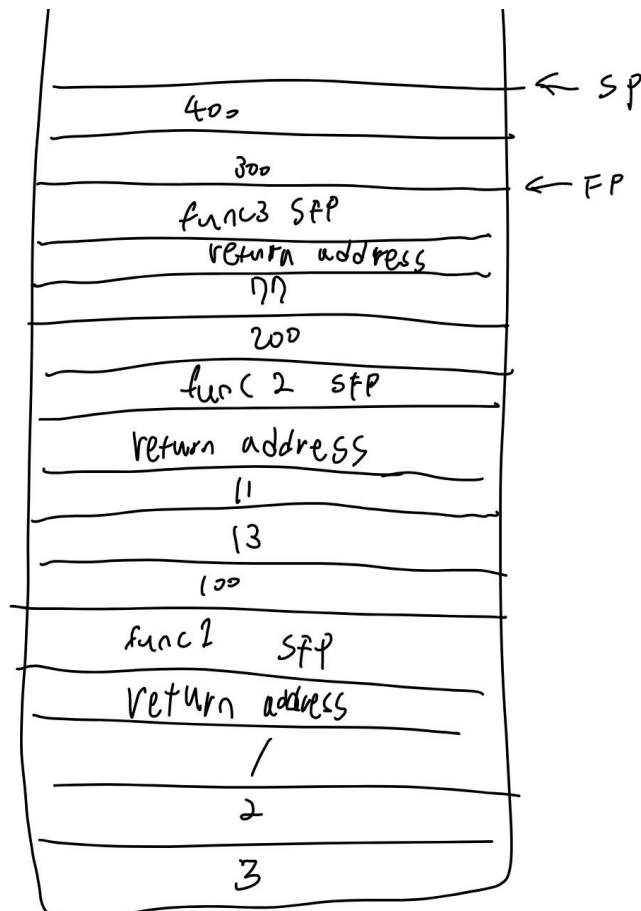 ← SP
400
300
← FP
func3 SFP
return address
77
200
func 2 SFP
return address
11
13
100
func1 SFP
return address
1
2
3